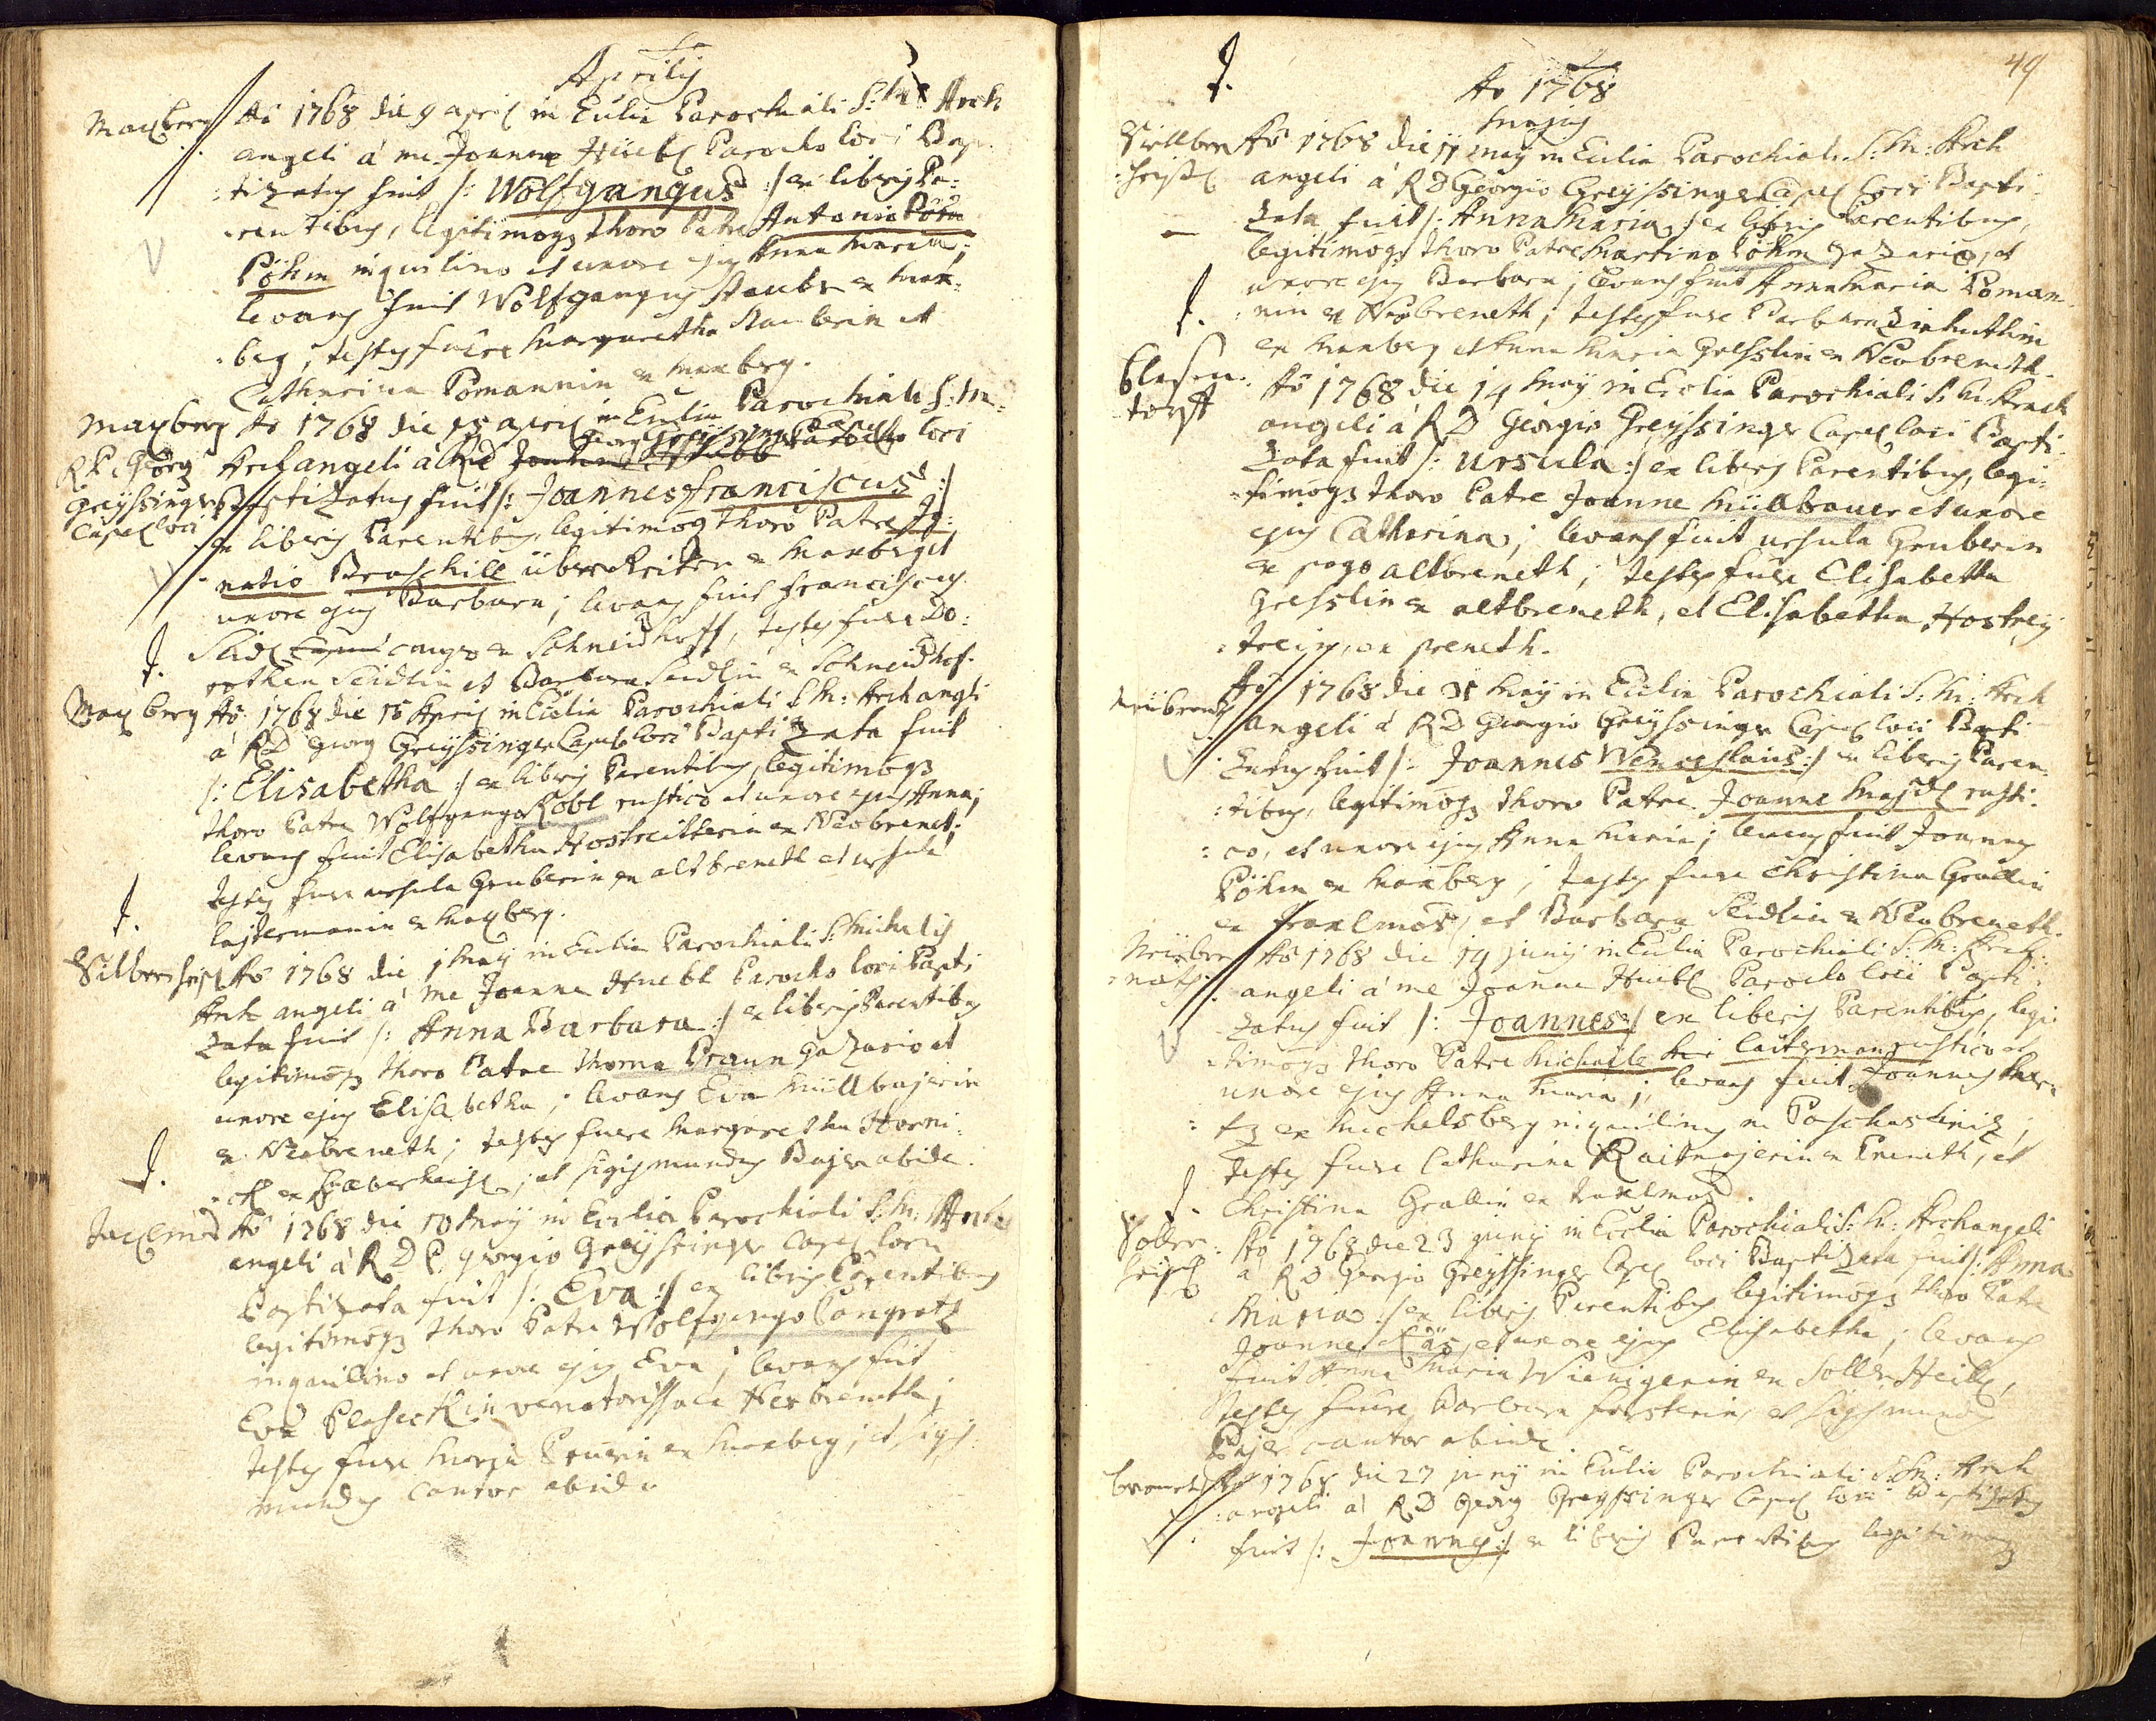 Aprilis
Maxberg Aõ 1768 die 9 april in Ecclia Parochiali S: M: Arch
angeli á me Joanne Hüebl Parocho loci Bap:
:tizatus fuit /: Wolfgangus :/ ex liberis Pa:
:rentibus, legitimoqz thoro Patre Antonio Böhm
Pöhm inquilino et uxore ejus Anna Maria;
levans fuit Wolfgangus Stauber ex Max:
:berg, testes fuere Margaretha Stauberin et
Catharina Pomannin ex Maxberg.
Maxberg Aõ 1768 die april in Ecclia Parochiali S: M:
R P Georg Archangeli á RD Georg Greyssinger Capel loci
Greyssinger Baptizatus fuit /: Joannes franciscus :/
Capel loci ex liberis Parentibus, legitimoqz thoro Patre Ig:
natio Braschill überReiter ex Maxberg et
uxore ejus Barbara; levans fuit franciscus
Seidl ex Schneidhoff, testes fuere Do:
rothea Seidlin et Barbara Seidlin ex Schneidhof.
Maxberg Aõ 1768 die 15 Aprilis in Ecclia Parochiali S M: Archangli
á RD Georg Greyssinger Capel loci Baptizata fuit
/: Elisabetha :/ ex liberis Parentibus, legitimoqz
thoro Patre Wolfgango Robl rustico et uxore ejus Anna;
levans fuit Elisabetha Hostreitterin ex Neobrenet;
testes fuere ursula Gruberin ex altbreneth et ursula
lajtermanin ex Maxberg.
Aõ 1768 die 1 May in Ecclia Parochiali S: Michaelis
Archangeli á me Joanne Huebl Parocho loci Bapti
zata fuit /: Anna Barbara :/ ex liberis Parentibus
legitimoqz thoro Patre Thoma Braun gazario et
uxore ejus Elisabetha; levans Eva Müllbajerin
ex Neobreneth; testes fuere Margaretha Horni:
et Sigismundus Bajer abide.
Aõ 1768 die 10 May in Ecclia Parochiali S: M: Arch
angeli á R D P. Georgio Greyssinger Capel loci
Baptizata fuit /: Eva :/ ex liberis Parentibus
legitimoqz thoro Patre Wolfgango Pangratz
inquilino et uxore ejus Eva; levans fuit
Eva Plaseckin venatorissa ex Neobreneth;
testes fuere ex Maxberg; et Sigis
mundus Cantor abide
49
Aõ 1768
Majus
Aõ 1768 die 11 may in Ecclia Parochiali S: M: Arch
angeli á R D Georgio Greyssinger Capel loci Bapti
zata fuit /: Anna Maria :/ ex liberis Parentibus,
legitimoqz thoro Patre Martino Pöhm gazario, et
uxore ejus Barbara; levans fuit Anna Maria Poman
:nin ex Neobreneth; testes fuere Barbara
ex Maxberg et Anna Maria Gresslin ex Neobreneth.
Aõ 1768 die 14 May in Ecclia Parochiali S: M: Arch
angeli á R D Georgio Greyssinger Capel loci Bapti:
zata fuit /: ursula :/ ex liberis Parentibus, legi:
:timoqz thoro Patre Joanne Müllbauer et uxore
ejus Catharina; levans fuit ursula Gruberin
ex pago altbreneth; testes fuere Elisabetha
Gresslin ex altbreneth, et Elisabetha Hostrej
:terin, ex preneth.
Aõ 1768 die May in Ecclia Parochiali S: M: Arch
angeli á R D Georgio Greyssinger Capel loci Bapti
zatus fuit /: Joannes Wenceslaus :/ ex liberis Paren:
:tibus, legitimoqz thoro Patre Joanne Majdl rusti:
:co, et uxore ejus Anna Maria; levans fuit Joannes
Pöhm ex Maxberg; testes fuere Christina Grallin
ex et Barbara Seidlin ex Neobreneth.
Aõ 1768 die 14 junij in Ecclia Parochiali S: M: Arch
angeli á me Joanne Huebl Parocho loci Bapti
zatus fuit /: Joannes :/ ex liberis Parentibus, legi
:timoqz thoro Patre Michaele Laiterman rustico et
uxore ejus Anna Maria; levans fuit Joannes
ex Michelsberg inquilinus
testes fuere Catharina Raitmajerin ex Preneth, et
Christina Grallin
Aõ 1768 die 23 junij in Ecclia Parochiali S: M: Archangeli
á R D Georgio Greyssinger Capel loci Baptizata fuit /: Anna
Maria :/ ex liberis Parentibus legitimoqz thoro Patre
Joanne et uxore ejus Elisabetha; levans
fuit Anna Maria
testes fuere Barbara forsterin, et Sigismundus
Bajer cantor abide.
Aõ 1768 die 27 junij in Ecclia Parochiali S: M: Arch
:angeli á R D Georg Greyssinger Capel loci Baptizatus
fuit /: Joannes :/ ex liberis Parentibus legitimoqz